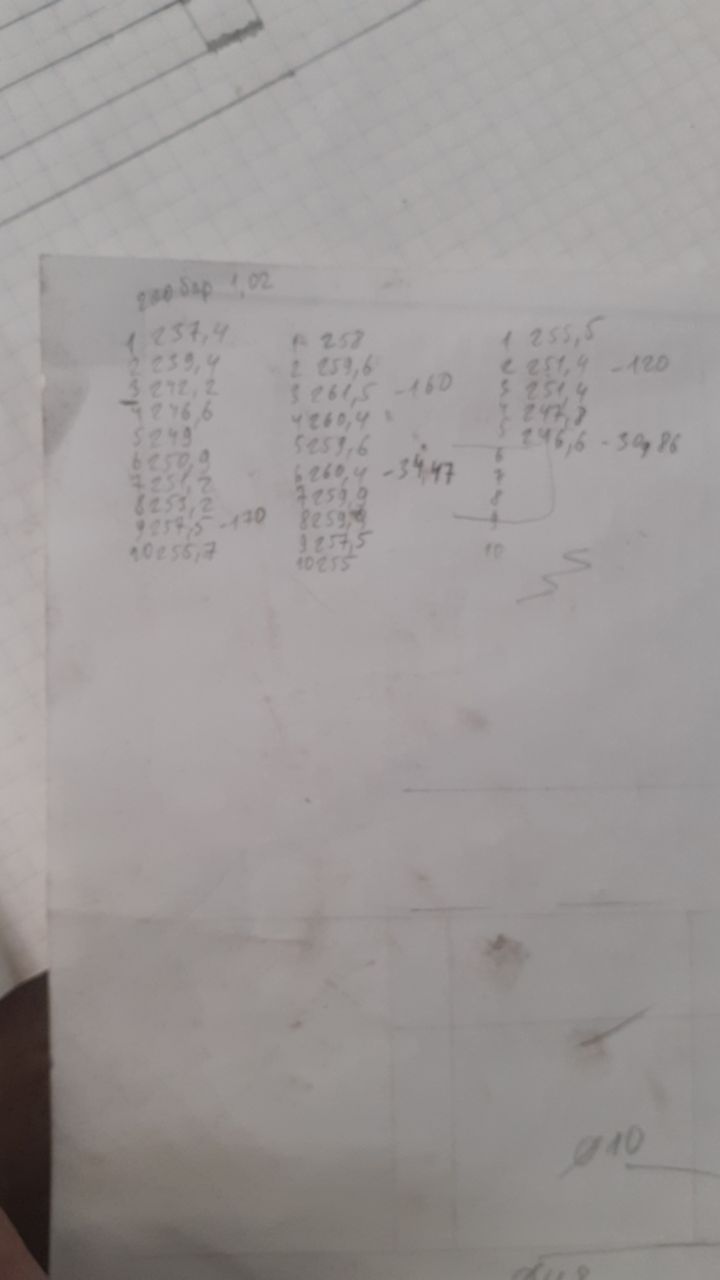 200 бар 1,02
1 237,4
2 239,4
3 242,2
4 246,6
5 249
6 250,9
7 251,2
8 253,2
9 257,5 -170
10 255,7
1 258
2 259,6
3 261,5 -160
4 260,4
5 259,6
6 260,4 -34,47
7 259,9
8 259,9
9 257,5
10 255
1 255,5
2 251,4 -120
3 251,4
4 247,8
5 246,6 -30,86
6
7
8
9
10
⌀10